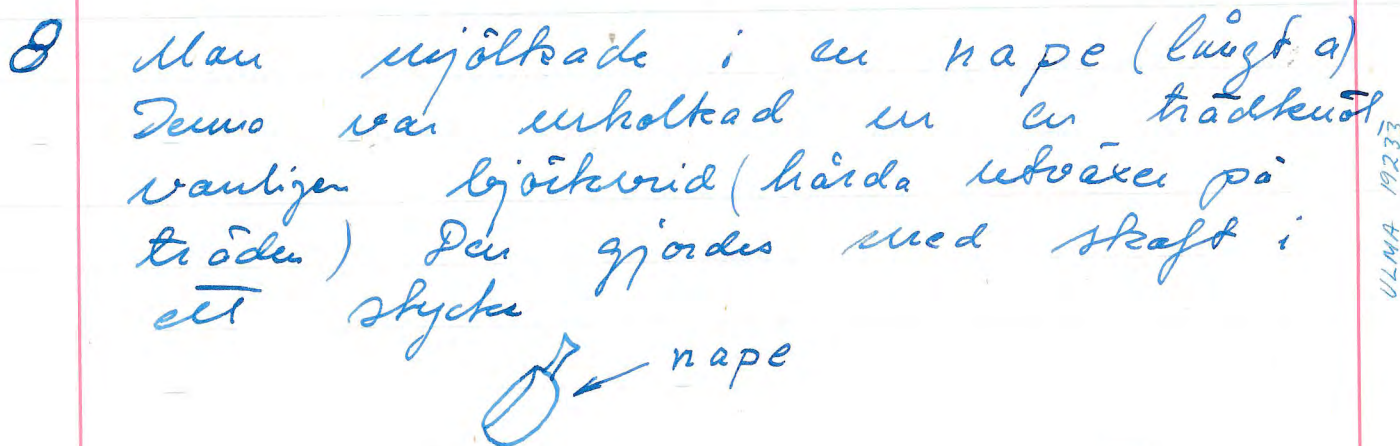 8 Man mjölkade i en nape (långt a)
Denna var urholkad ur en trädknöl,
vanligen björkvrid (hårda utväxer på
träden) Den gjordes med skaft i
ett stycke
nape
ULMA 19233